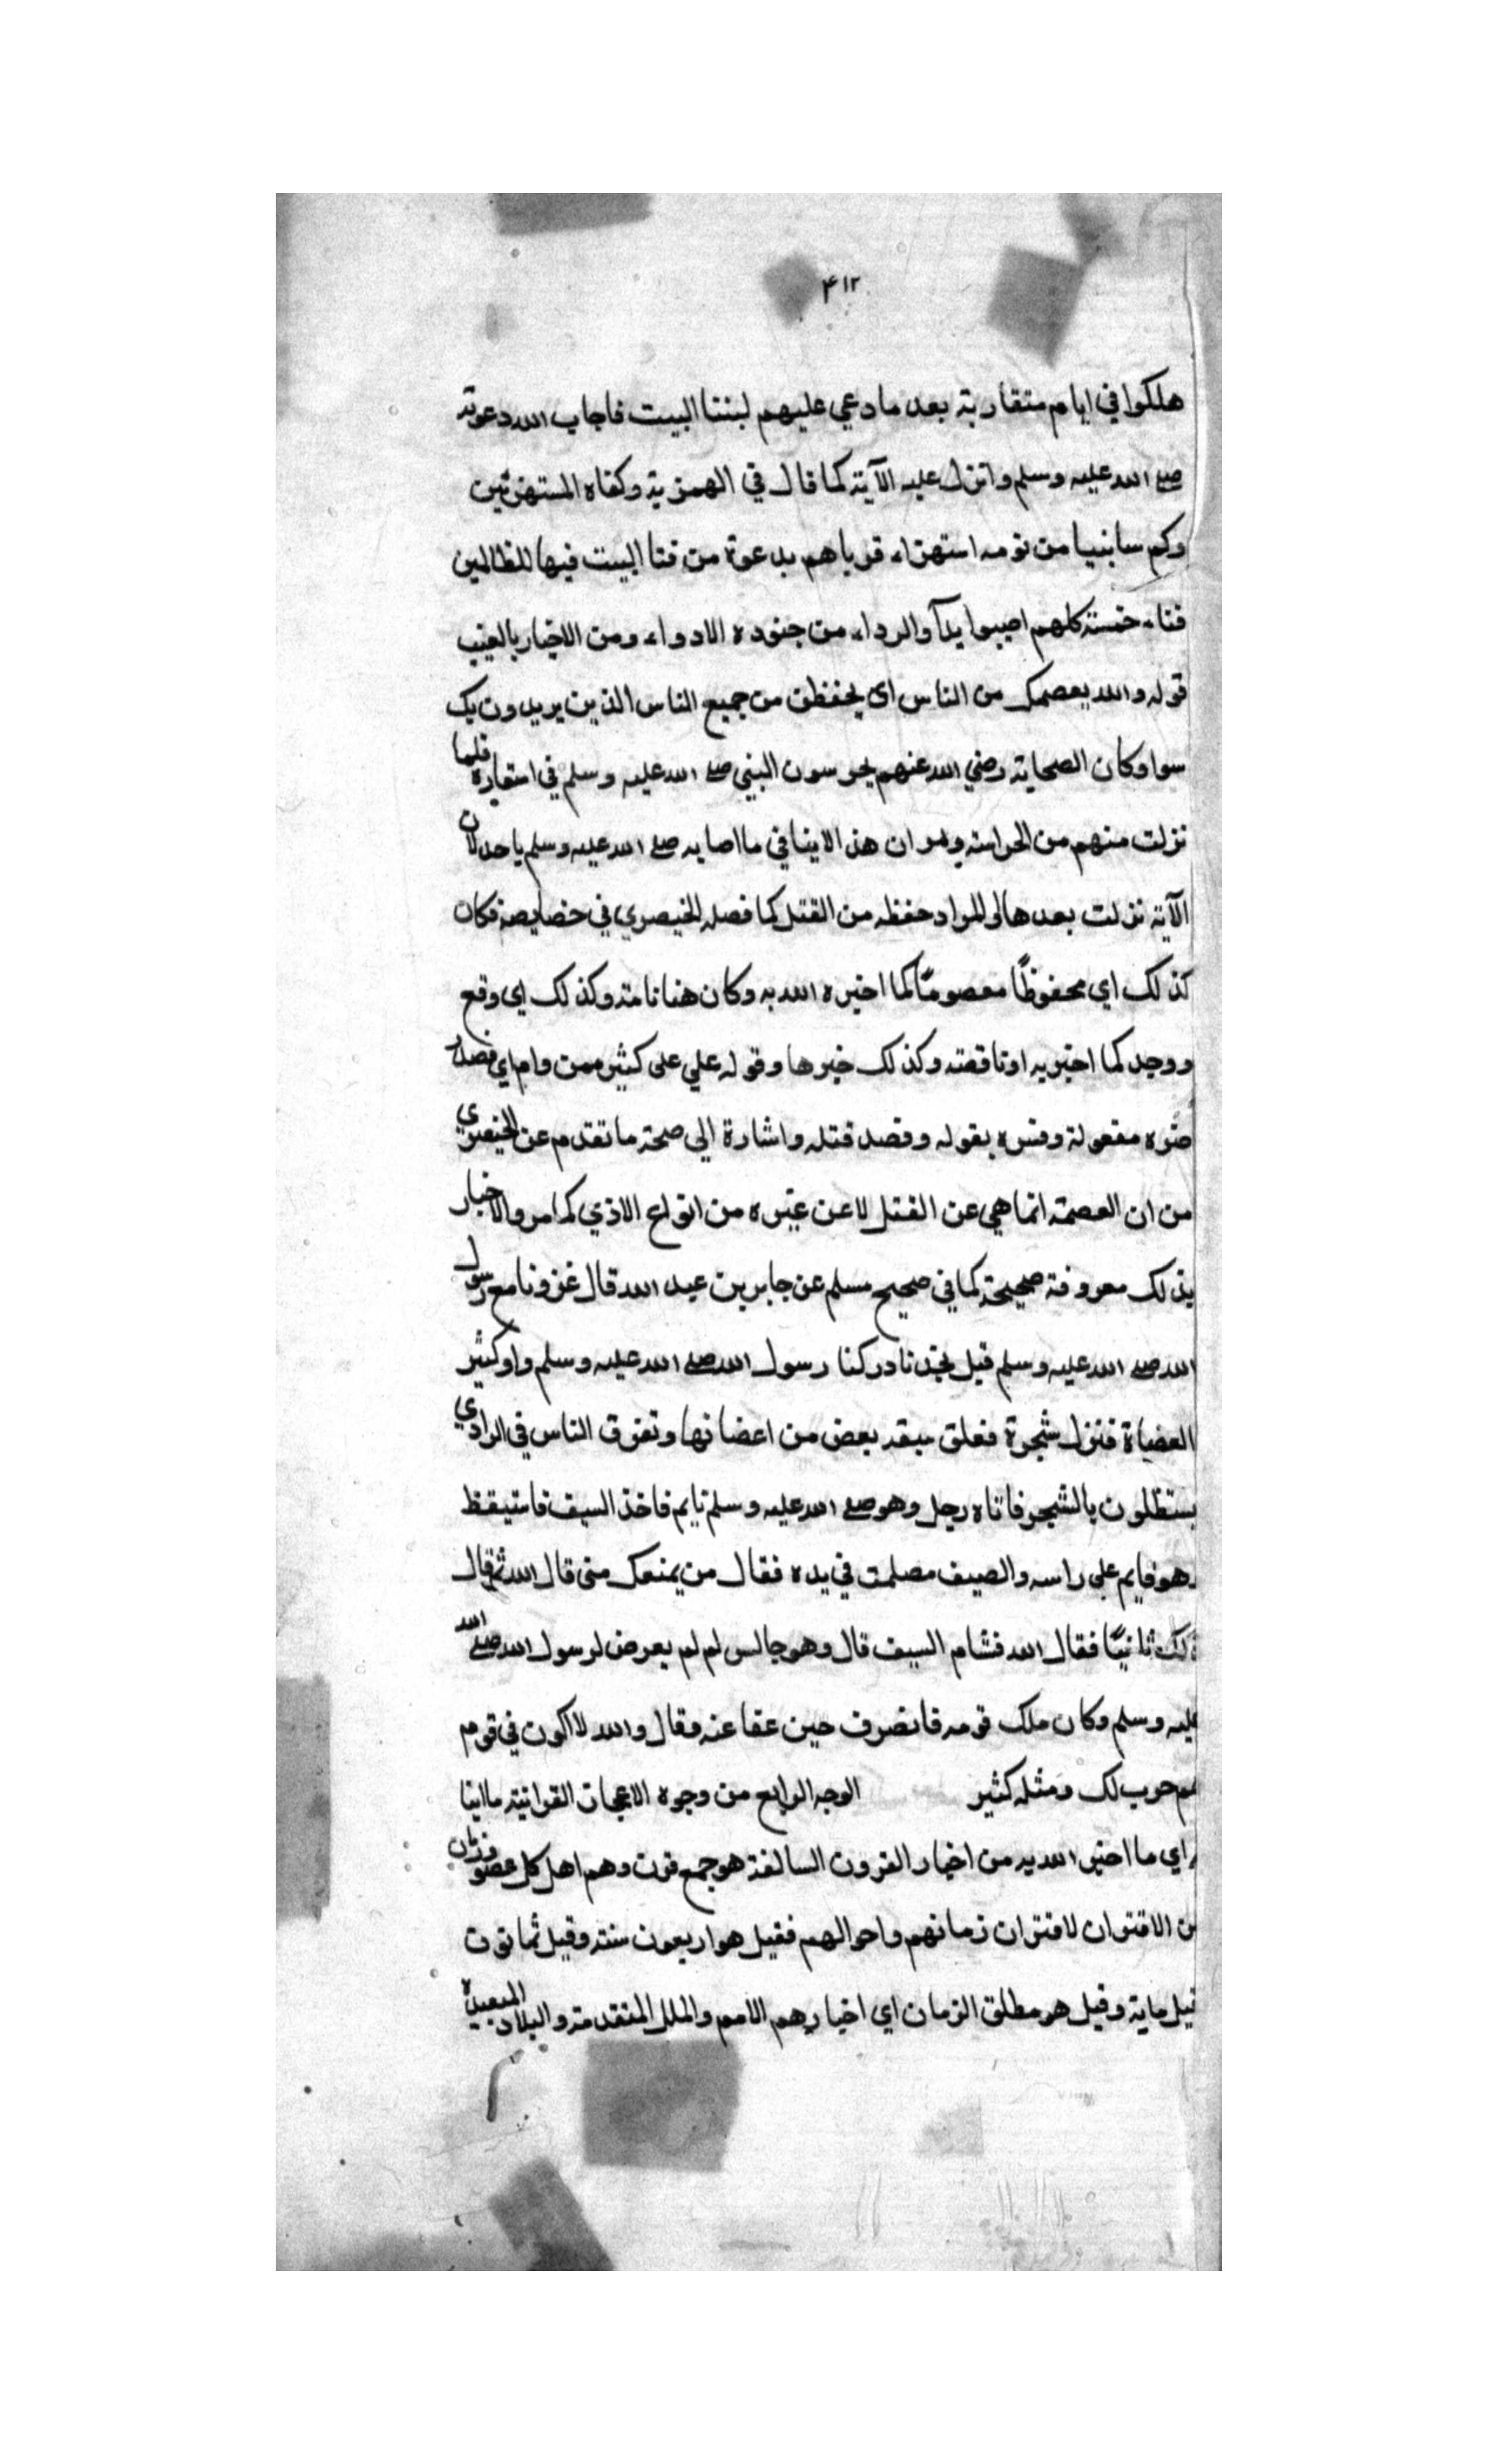 ٤١٢
هلكوا في ايام متقاربة بعد ما دعي عليهم لبننا البيت فاجاب الله دعوته
صلے الله عليه وسلم وانزل عليه الآية كما قال في الهمزية وكفاه المستهزئين
وكم سا نبيا من قومه استهزاء قرباهم بدعوة من فنا البيت فيها للظالمين
فناء خمسة كلهم اصيبوا بدآ والرداء من جنوده الادواء ومن الاخبار بالغيب
قوله والله يعصمك من الناس اى يحفظك من جميع الناس الذين يريدون بك
سوا وكان الصحابة رضي الله عنهم يحرسون النبي صلے الله عليه وسلم في اسفاره فلما
نزلت منهم من الحراسة ومر ان هذا لا ينافي ما اصابه صلے الله عليه وسلم باحد لان
الآية نزلت بعدها او المراد حفظه من القتل كما فصله الخيصري في خصايصه فكان
كذلك اي محفوظًا معصومًا كما اخبره الله به وكان هنا تامة وكذلك اي وقع
ووجد كما اخبر به او ناقصة وكذلك خبرها وقوله علي على كثير ممن وام اي قصد
ضره مفعوله وفسره بقوله وقصد قتله واشارة الي صحة ما تقدم عن الخيضري
من ان العصمة انما هي عن القتل لا عن غيره من انواع الاذي كما مر والاخبار
بذلك معروفة صحيحة كما في صحيح مسلم عن جابر بن عبد الله قال غزونا مع رسول
الله صلے الله عليه وسلم قبل نجد فادركنا رسول الله صلے الله عليه وسلم واد كثير
العضاة فنزل شجرة فعلق سيفه ببعض من اغصانها وتفرق الناس في الوادي
يستظلون بالشجر فاتاه رجل وهو صلے الله عليه وسلم نايم فاخذ السيف فاستيقظ
وهو قايم على راسه والصيف مصلت في يده فقال من يمنعك مني قال الله ثم قال
ذلك ثانيًا فقال الله فشام السيف قال وهو جالس لم لم يعرض لرسول الله صلے الله
عليه وسلم وكان ملك قومه فانصرف حين عفا عنه وقال والله لا اكون في قوم
هم حرب لك ومثله كثير الوجه الرابع من وجوه الاعجاز القرانية ما انبا
به اي ما اخبر الله به من اخبار القرون السالفة هو جمع قرن وهم اهل كل عصر وزمان
من الاقتران لاقتران زمانهم واحوالهم فقيل هو اربعون سنة وقيل ثمانون
قيل ماية وقيل هو مطلق الزمان اي اخبارهم الامم والملل المتقدمة والبلاد البعيدة